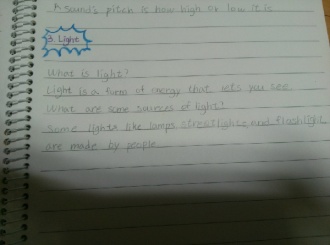 A sound's pitch is how high or low it is
3 Light
What is light?
Light is a form of energy that lets you see
What are some sources of light?
Some lights like lamps, streetlights, and flashlight
are made by people